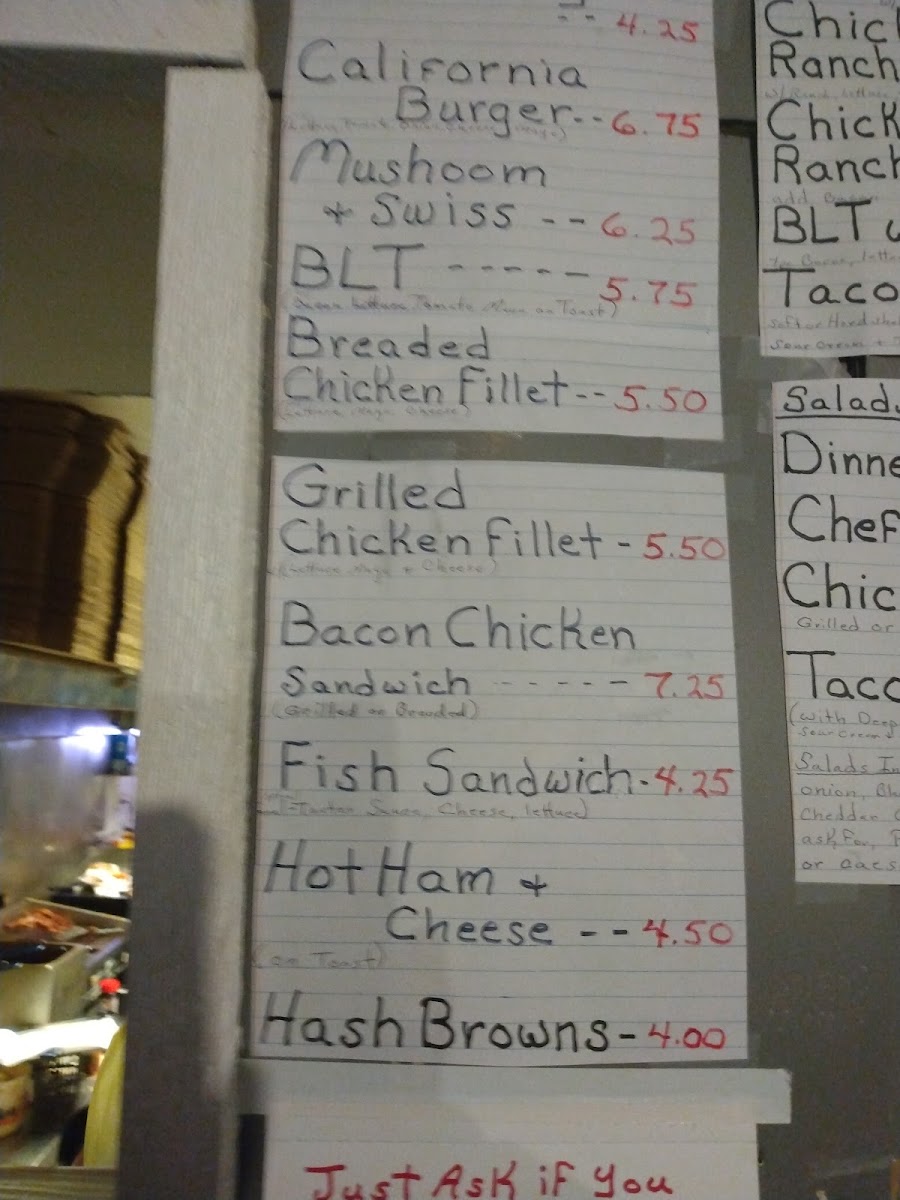 -- 4.25
California
Burger-- 6.75
Mushoom
+ Swiss -- 6.25
BLT ----- 5.75
Lettuce Tomato on Toast)
Breaded
Chicken Fillet-- 5.50
Grilled
Chicken Fillet - 5.50
(Lettuce Mayo + Cheese)
Bacon Chicken
Sandwich ----- 7.25
(Grilled or Breaded)
Fish Sandwich- 4.25
(Tartar Sauce, Cheese, lettuce)
Hot Ham +
Cheese -- 4.50
(on Toast)
Hash Browns- 4.00
Just Ask if you
Chic
Ranch
Chick
Ranch
BLT
Taco
Soft or Hard
Sour Cream +
Salad
Dinne
Chef
Chic
Grilled or
Taco
(with Deep
Sour Cream
Salads In
onion, Bl
Cheddar
ask for,
or Caes